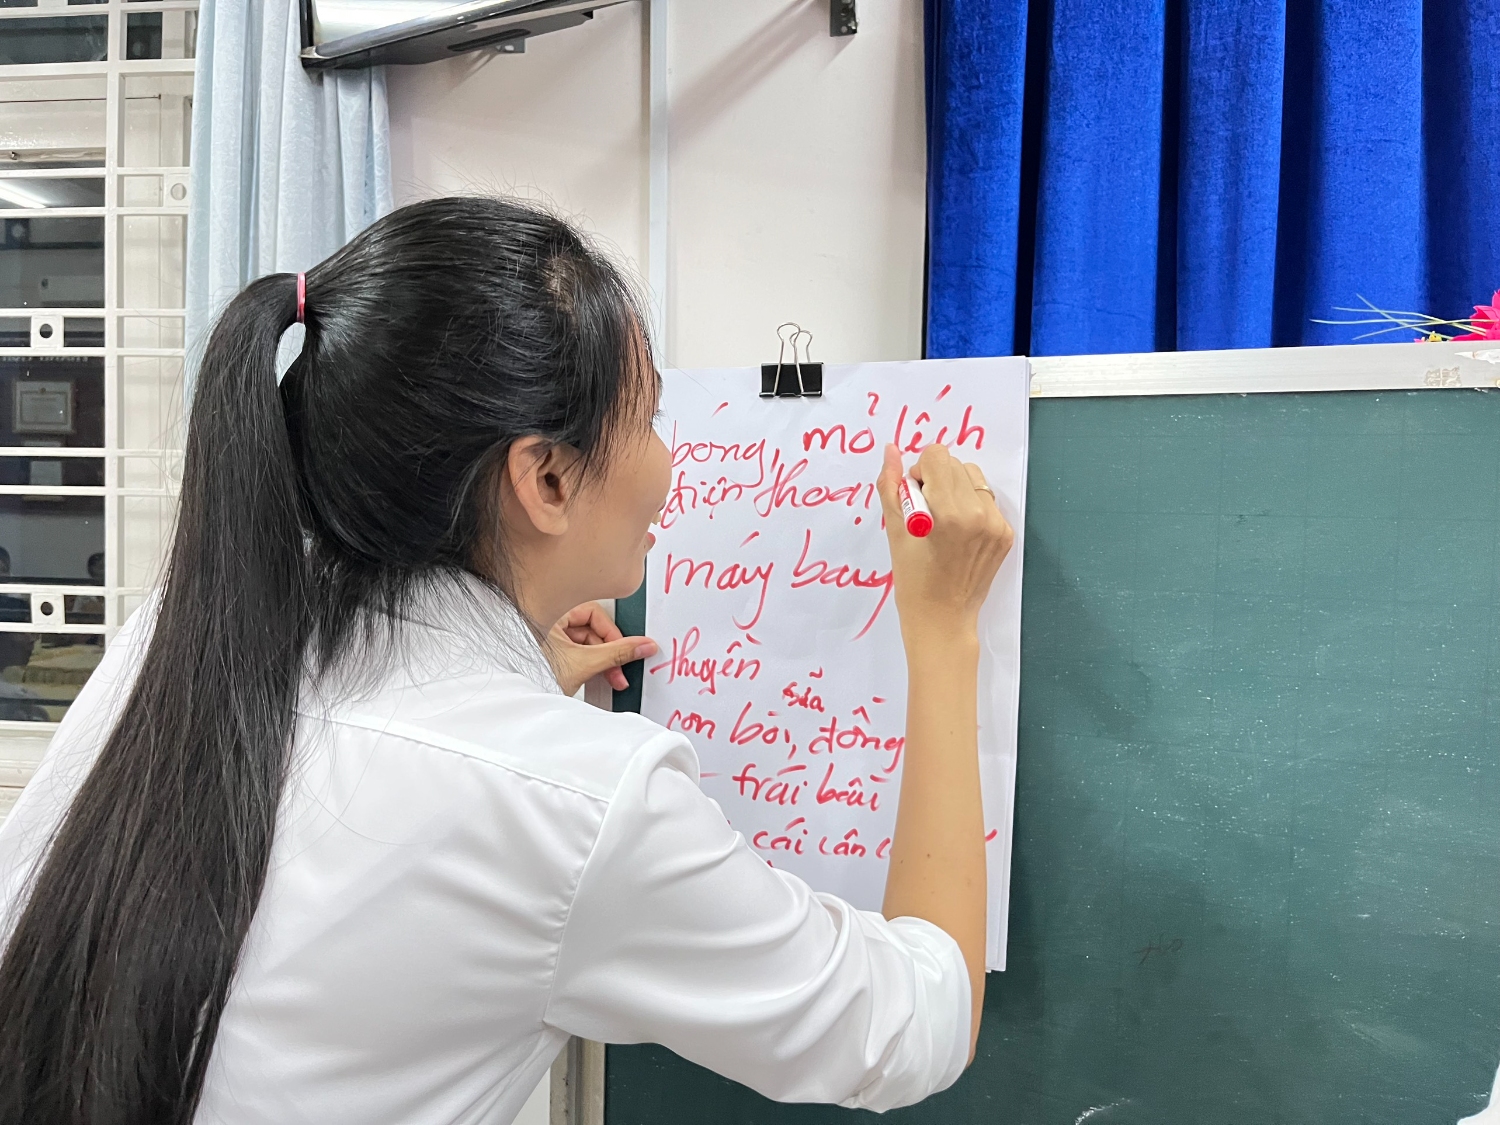 bóng, mỏ lếch
điện thoại
máy bay
thuyền
sữa
con bò, đồng
trái bầu
cái cân